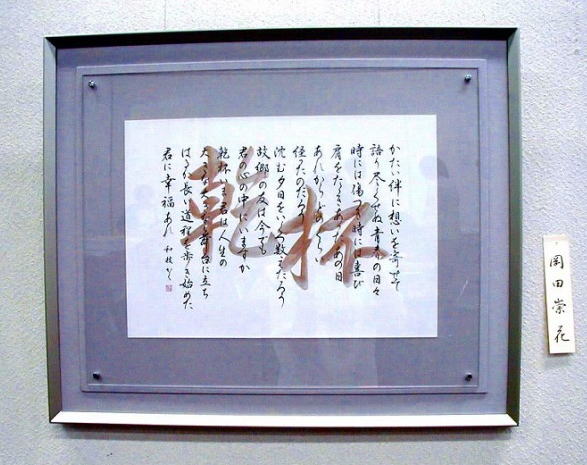 かたい絆に想いを寄せて
語り尽くせぬ青春の日々
時には傷つき時には喜び
肩をたたきあったあの日
あれからどれくらい
経ったのだろう
沈む夕日をいくつ数えたろう
故郷の友は今でも
君の心の中にいますか
乾杯いま君は人生の
大きな大きな舞台に立ち
はるか長い道程を歩き始めた
君に幸福あれ
乾杯
岡田崇花